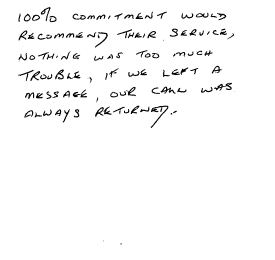 100% COMMITMENT WOULD
RECOMMEND THEIR SERVICE,
NOTHING WAS TOO MUCH
TROUBLE, IF WE LEFT A
MESSAGE, OUR CALL WAS
ALWAYS RETURNED.